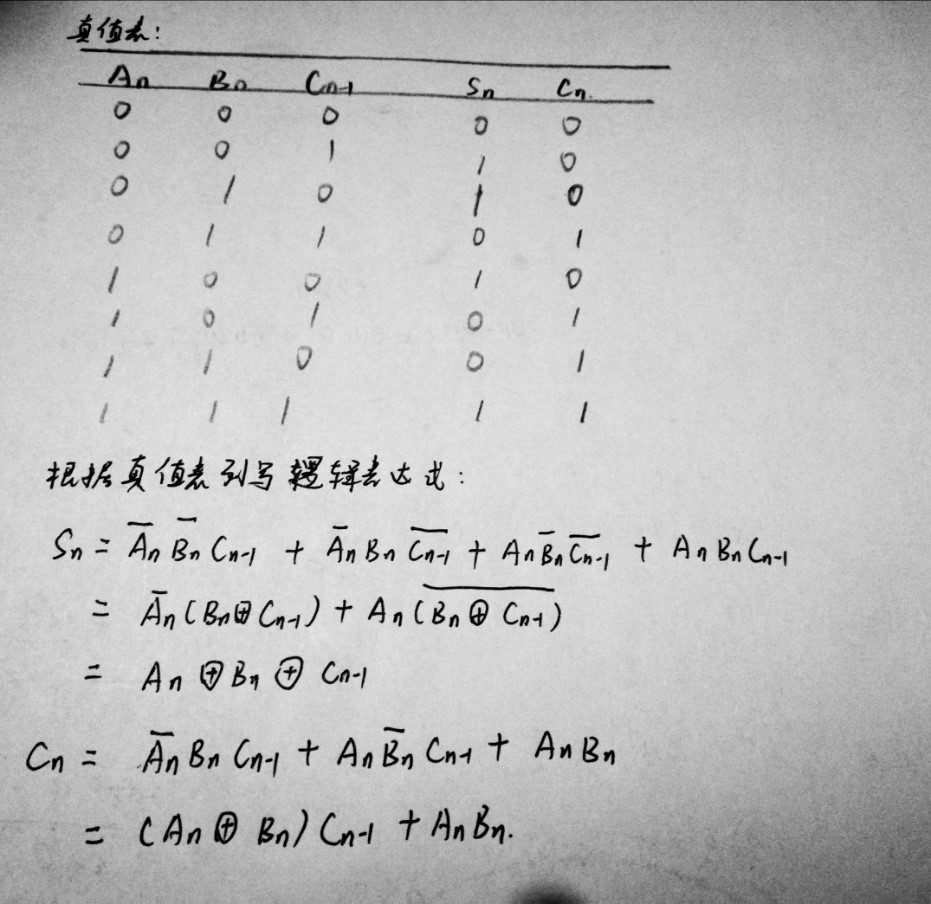 真值表:
An Bn Cn-1 Sn Cn
0 0 0 0 0
0 0 1 1 0
0 1 0 1 0
0 1 1 0 1
1 0 0 1 0
1 0 1 0 1
1 1 0 0 1
1 1 1 1 1
根据真值表列写逻辑表达式:
Sn = A̅n B̅n Cn-1 + A̅n Bn C̅n̅-̅1̅ + An B̅n C̅n̅-̅1̅ + An Bn Cn-1
= A̅n (Bn ⊕ Cn-1) + An (̅B̅n̅ ̅⊕̅ ̅C̅n̅-̅1̅)̅
= An ⊕ Bn ⊕ Cn-1
Cn = A̅n Bn Cn-1 + An B̅n Cn-1 + An Bn
= (An ⊕ Bn) Cn-1 + An Bn.